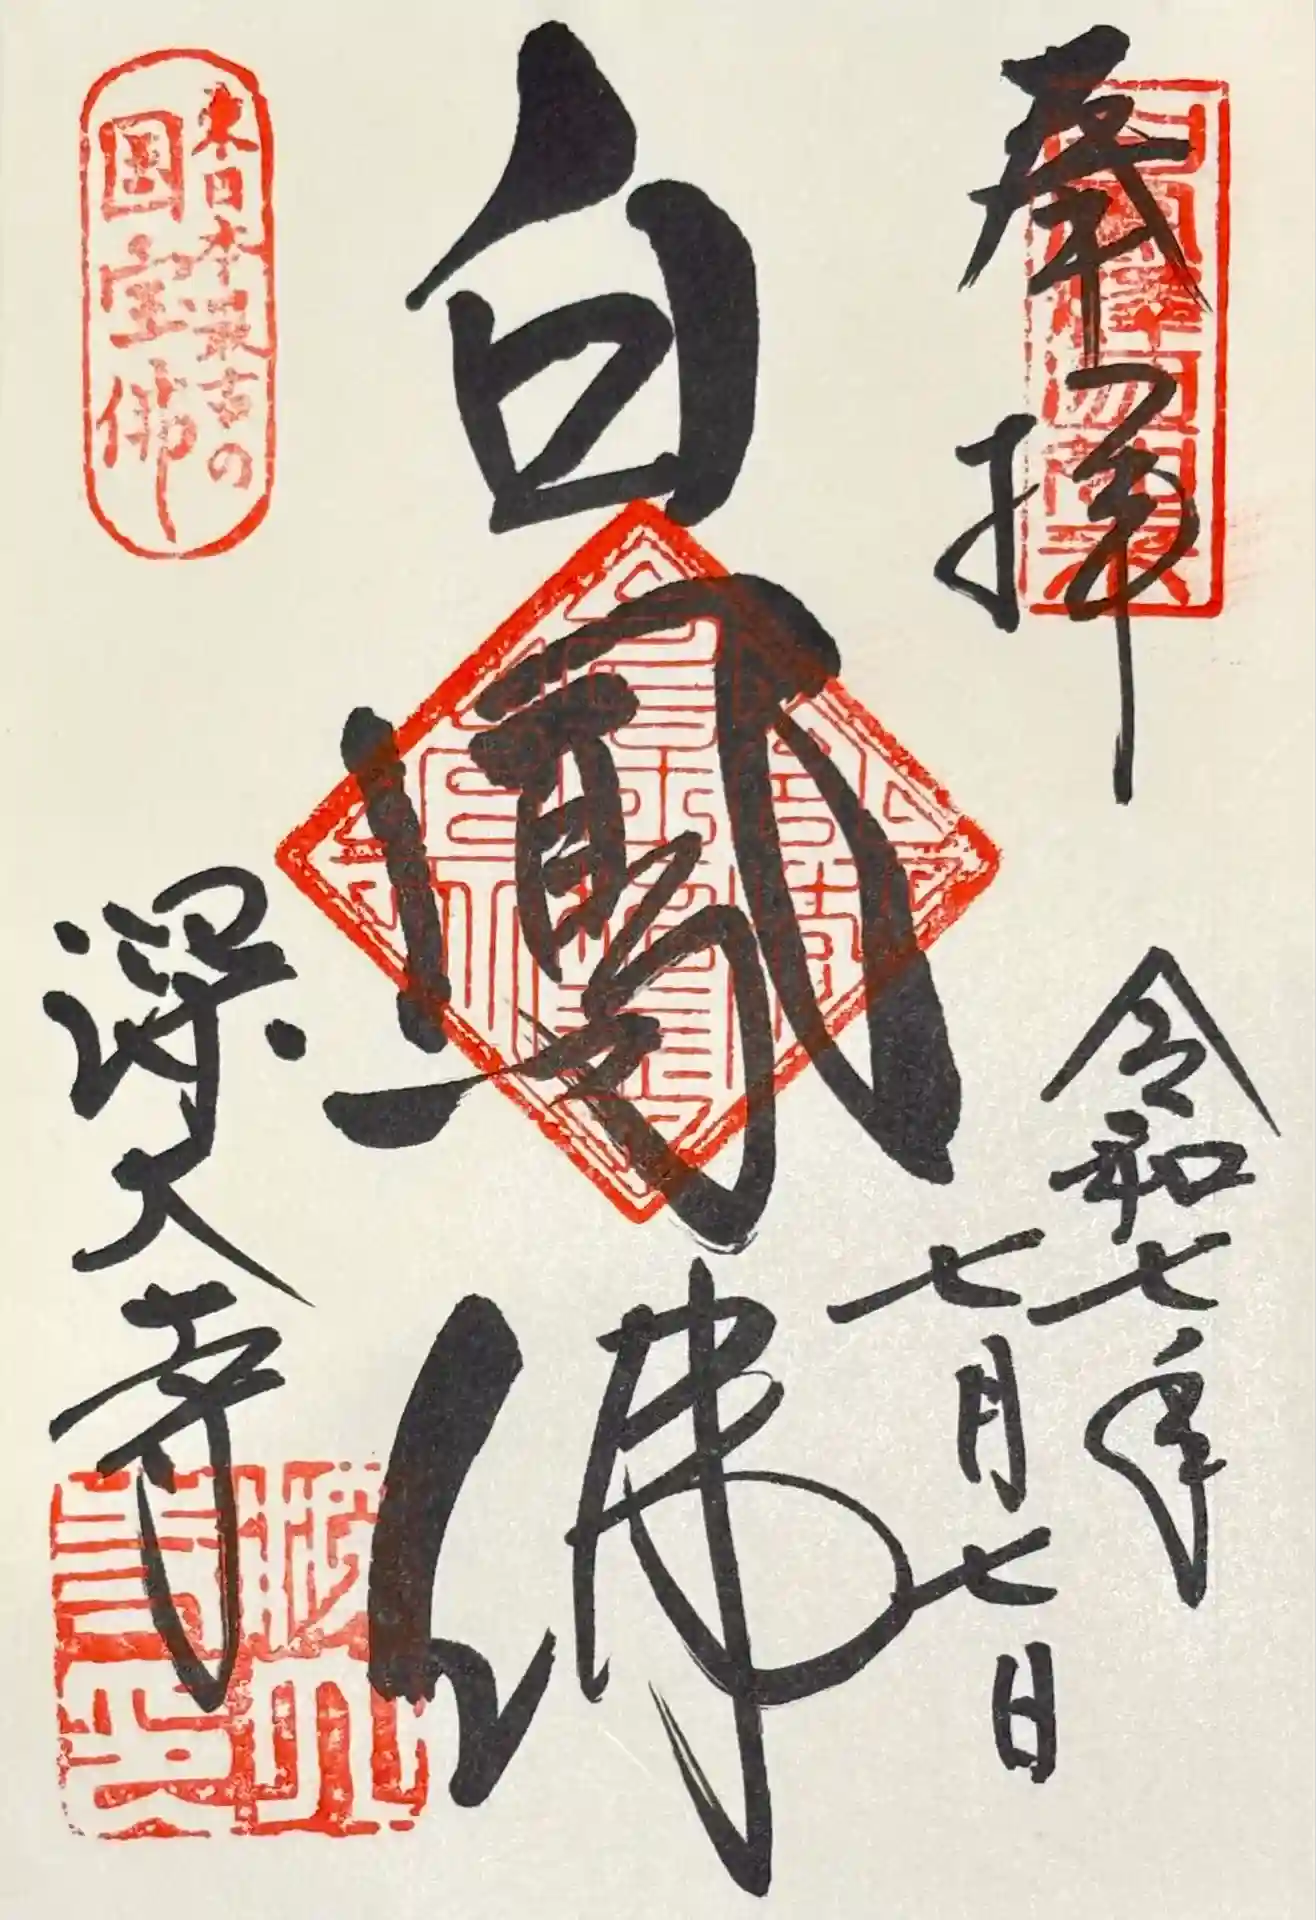 奉拝
令和七年
七月七日
白鳳佛
東日本最古の
国宝佛
深大寺